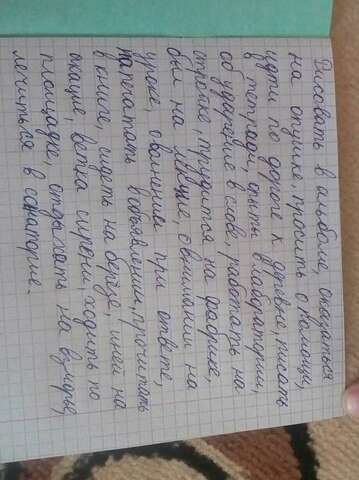 Рисовать в альбоме, оказаться
на опушке, просить о помощи,
идти по дороге к деревне, писать
в тетради, опыты в лаборатории,
об ударение в слове, работать на
стройке, трудится на фабрике,
был на лекции, о внимании на
уроке, о волнении при ответе,
напечатать в объявлении, прочитать
в книге, сидеть на берегу, иней на
окация, ветка сирени, ходить по
площадке, отдыхать на взморье,
лечиться в санатории.